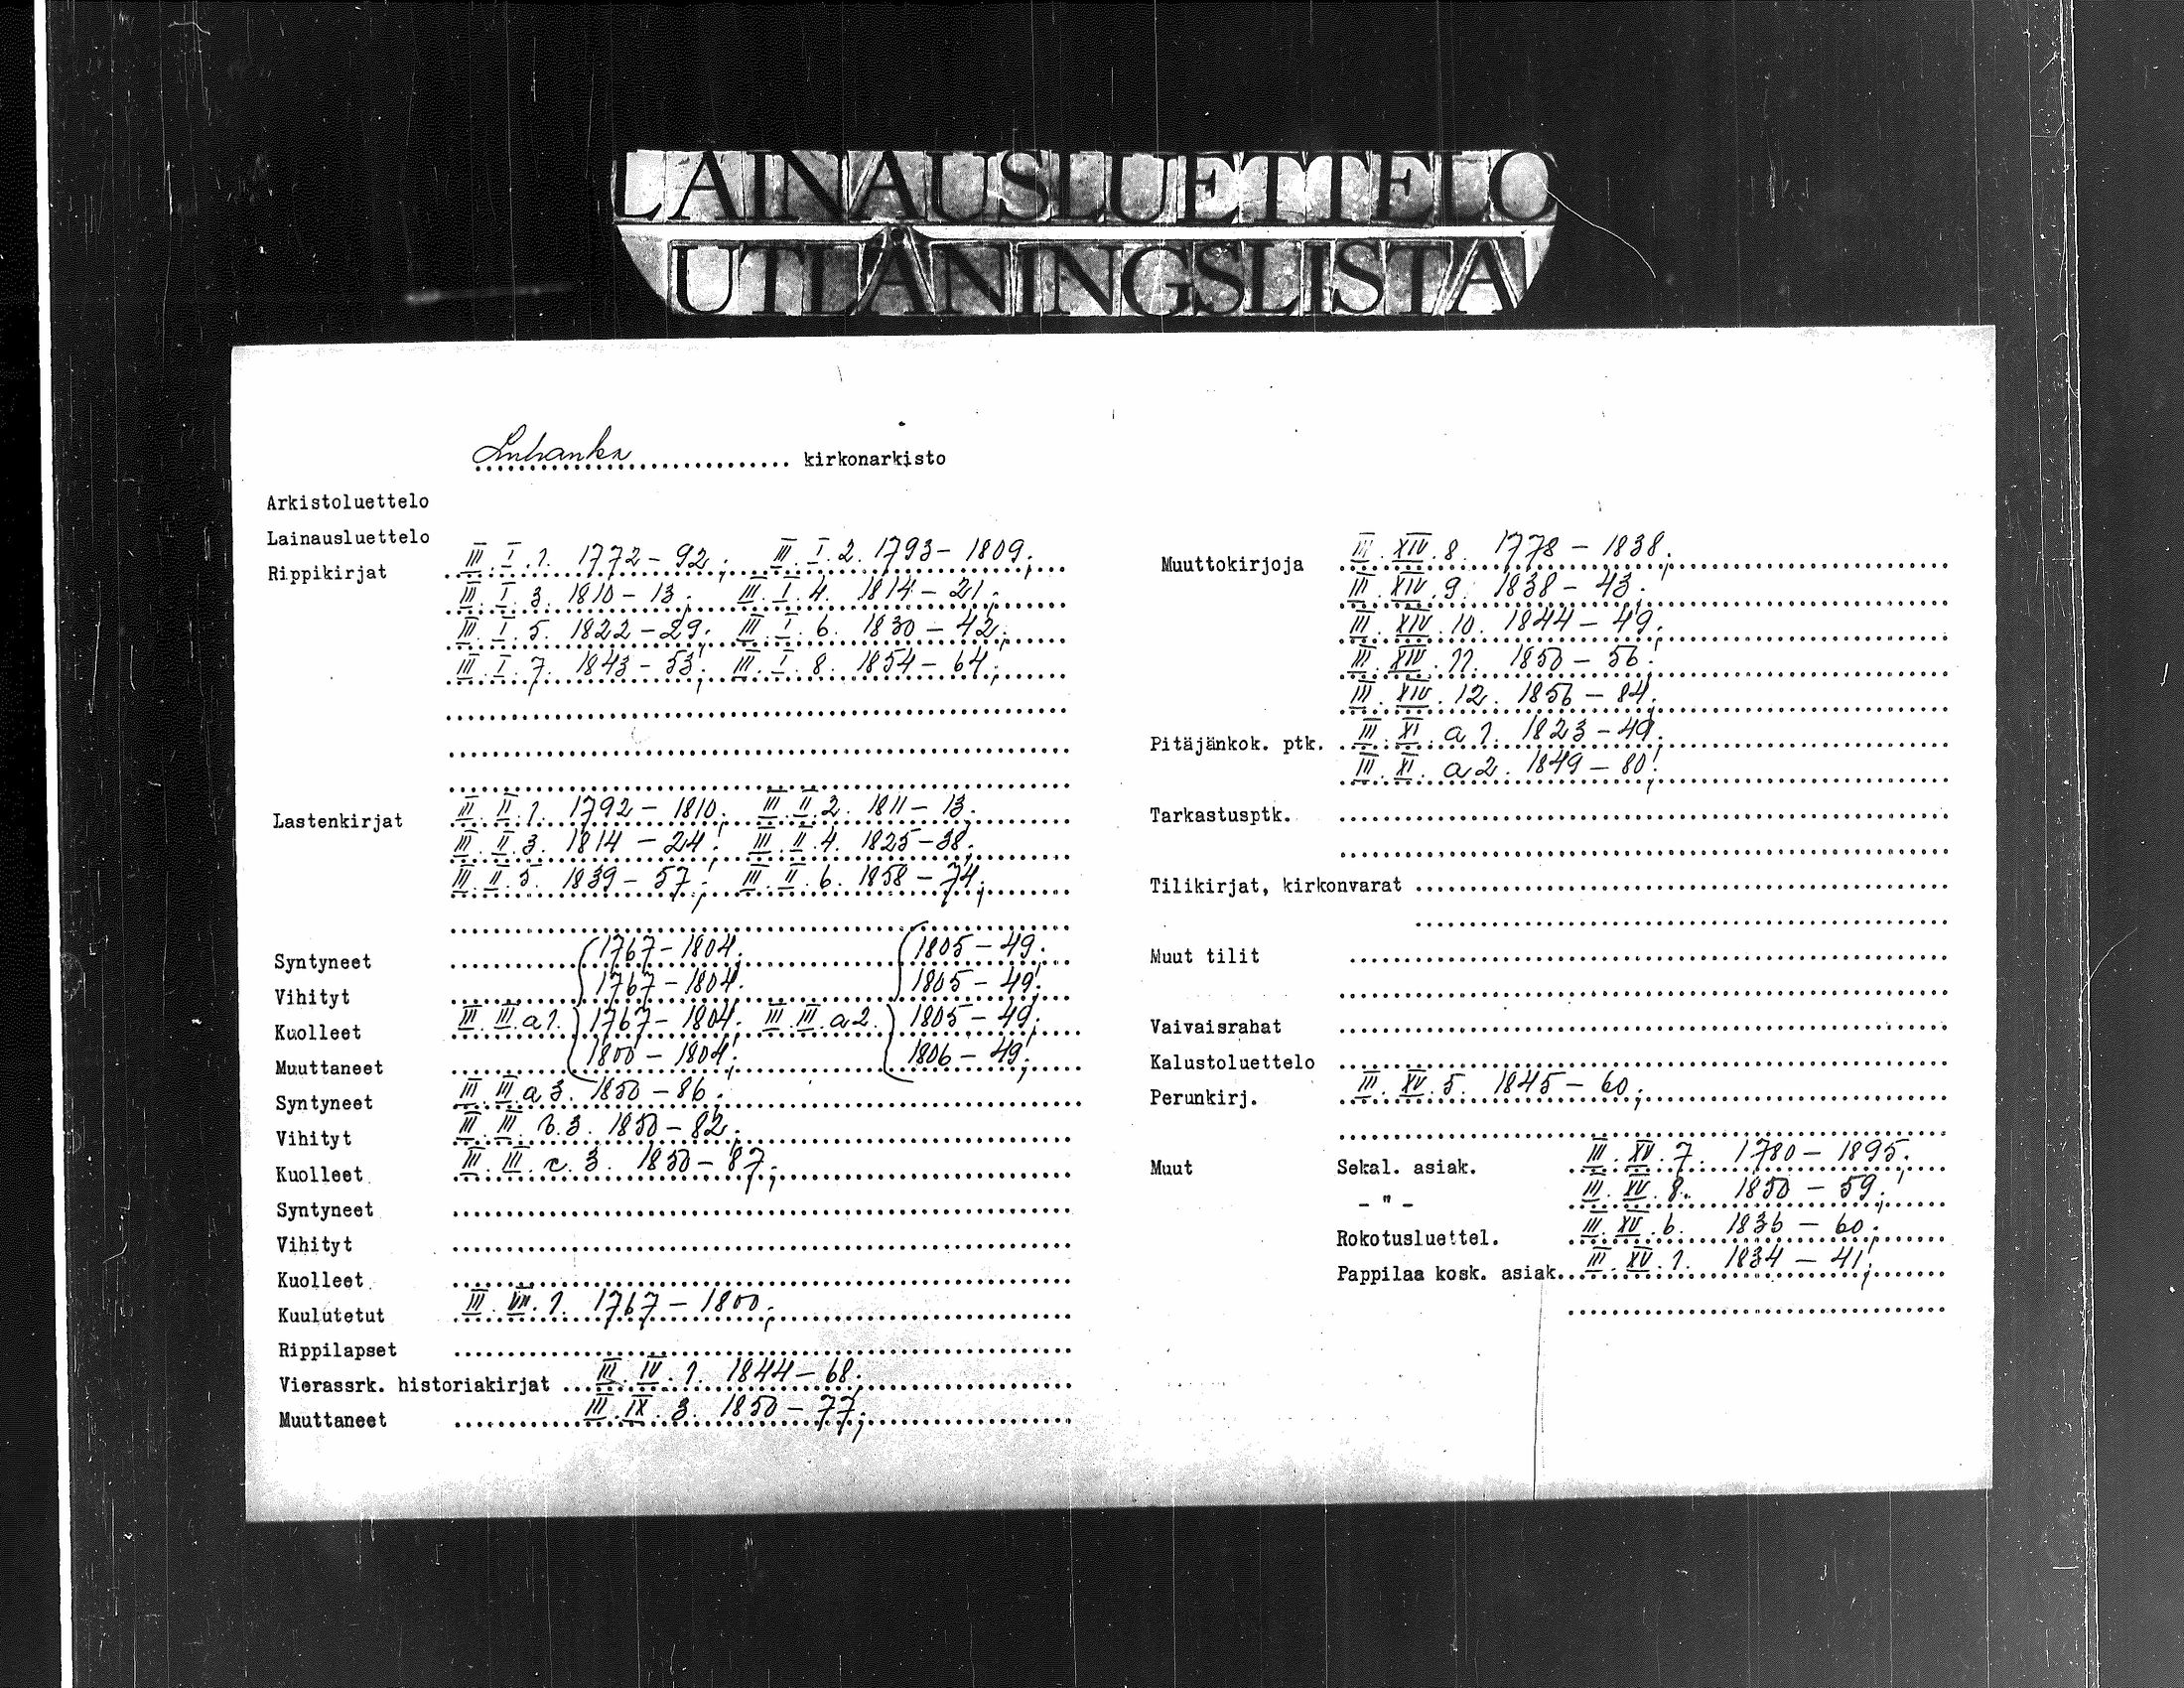 LAINAUSLUETTELO
UTLÅNINGSLISTA
Luhanka kirkonarkisto
Arkistoluettelo
Lainausluettelo
Rippikirjat III. I. 1. 1772-92; III. I. 2. 1793-1809;
III. I. 3. 1810-13; III. I. 4. 1814-21;
III. I. 5. 1822-29; III. I. 6. 1830-42;
III. I. 7. 1843-53; III. I. 8. 1854-64;
Lastenkirjat III. II. 1. 1792-1810; III. II. 2. 1811-13;
III. II. 3. 1814-24; III. II. 4. 1825-38;
III. II. 5. 1839-57; III. II. 6. 1858-74;
Syntyneet 1767-1804; 1805-49;
Vihityt 1767-1804; 1805-49;
Kuolleet III. III. a 1. 1767-1804; III. III. a 2. 1805-49;
Muuttaneet 1800-1804; 1806-49;
Syntyneet III. III. a 3. 1850-86;
Vihityt III. III. b. 3. 1850-82;
Kuolleet III. III. c. 3. 1850-87;
Syntyneet
Vihityt
Kuolleet
Kuulutetut III. VII. 1. 1767-1800;
Rippilapset
Vierassrk. historiakirjat III. IV. 1. 1844-68;
Muuttaneet III. IX. 3. 1850-77;
Muuttokirjoja III. XIV. 8. 1778-1838;
III. XIV. 9. 1838-43;
III. XIV. 10. 1844-49;
III. XIV. 11. 1850-56;
III. XIV. 12. 1856-84;
Pitäjänkok. ptk. III. XI. a 1. 1823-49;
III. XI. a 2. 1849-80;
Tarkastusptk.
Tilikirjat, kirkonvarat
Muut tilit
Vaivaisrahat
Kalustoluettelo
Perunkirj. III. XV. 5. 1845-60;
Muut Sekal. asiak. III. XV. 7. 1780-1895;
- " - III. XV. 8. 1850-59;
Rokotusluettel. III. XV. 6. 1836-60;
Pappilaa kosk. asiak. III. XV. 1. 1834-41;